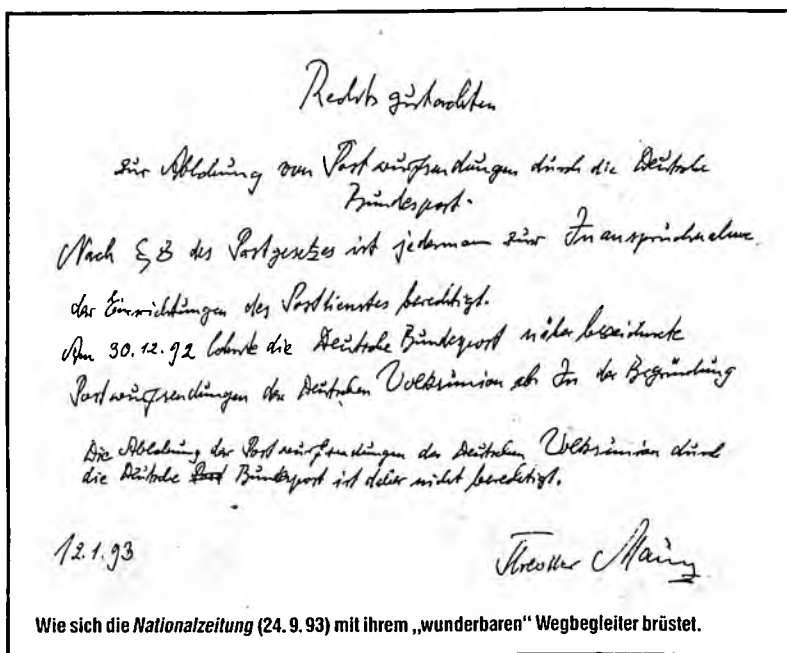 Rechtsgutachten
zur Ablehnung von Postwurfsendungen durch die Deutsche
Bundespost.
Nach § 8 des Postgesetzes ist jedermann zur Inanspruchnahme
der Einrichtungen des Postdienstes berechtigt.
Am 30.12.92 lehnte die Deutsche Bundespost näher bezeichnete
Postwurfsendungen der Deutschen Volksunion ab. In der Begründung
Die Ablehnung der Postwurfsendungen der Deutschen Volksunion durch
die Deutsche Post Bundespost ist daher nicht berechtigt.
12.1.93
Theodor Maunz
Wie sich die Nationalzeitung (24.9.93) mit ihrem „wunderbaren“ Wegbegleiter brüstet.